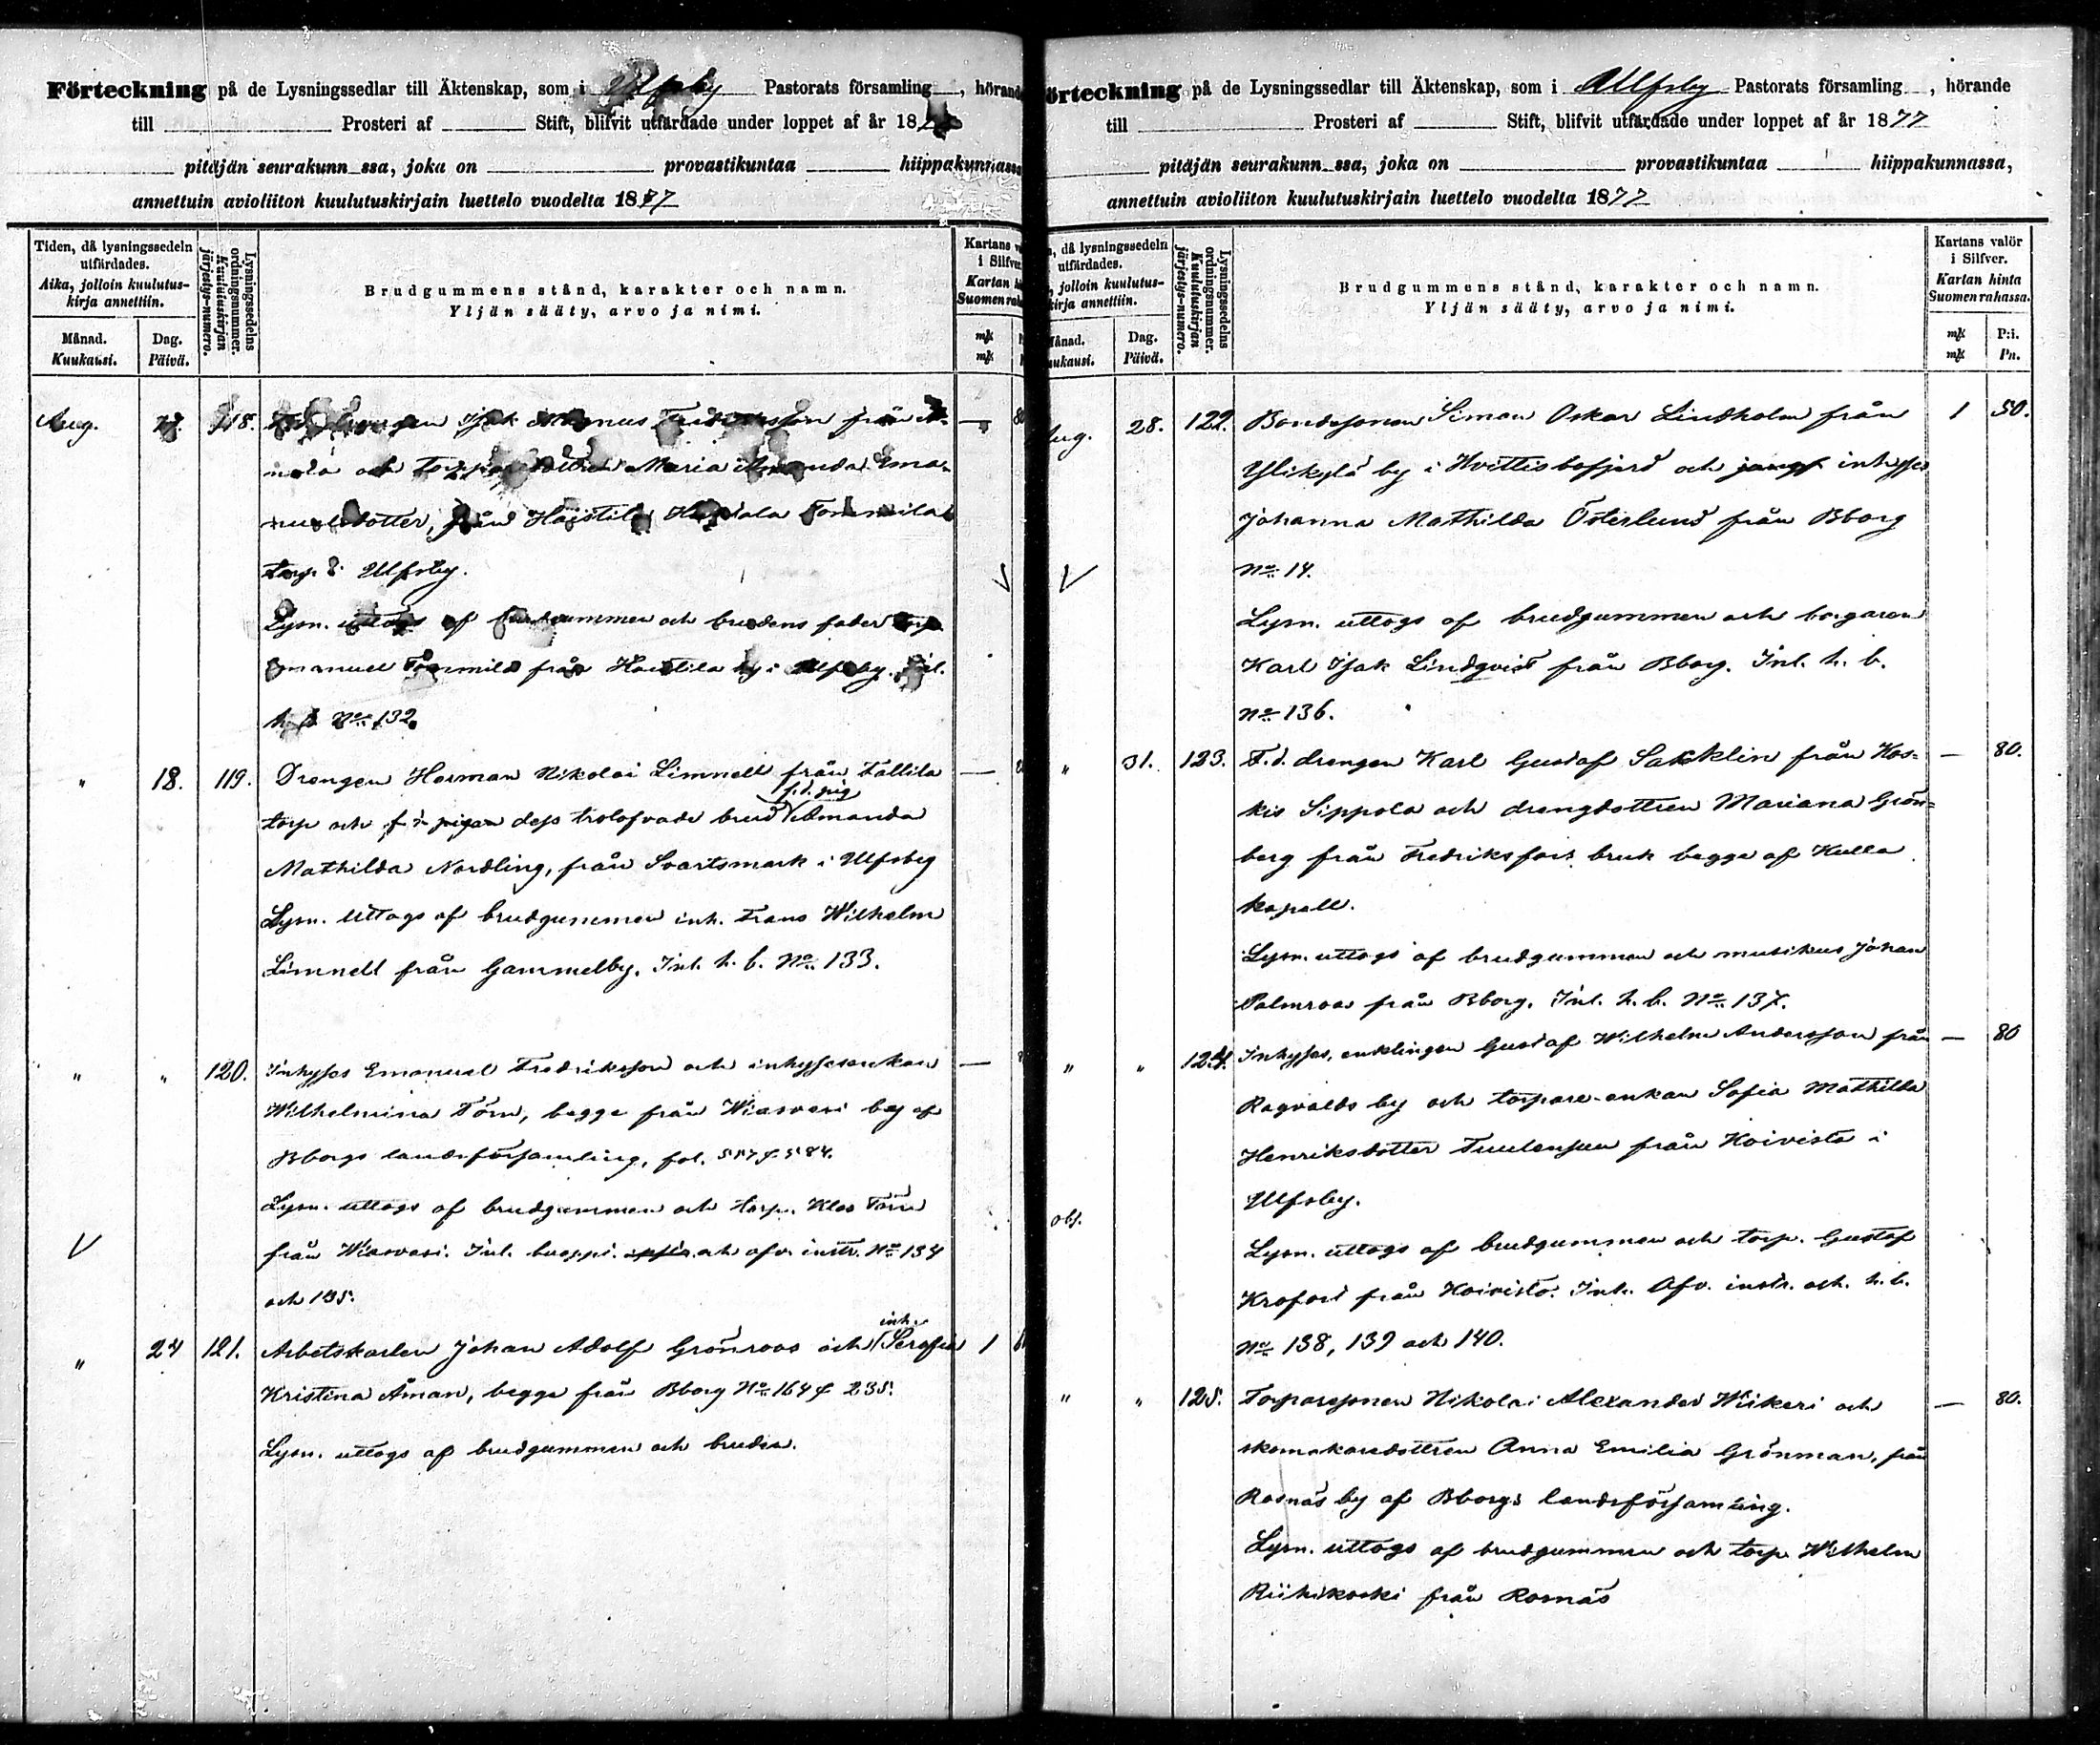 Förteckning på de Lysningssedlar till Äktenskap, som i Ulfsby Pastorats församling, hörande
till Prosteri af Stift, blifvit utfärdade under loppet af år 18
pitäjän seurakunn ssa, joka on provastikuntaa hiippakunnassa
annettuin avioliiton kuulutuskirjain luettelo vuodelta 1877
Tiden, då lysningssedeln utfärdades.
Aika, jolloin kuulutus-kirja annettiin.
Månad. Dag.
Kuukausi. Päivä.
Lysningssedelns ordningsnummer.
Kuulutuskirjan järjestys-numero.
Brudgummens stånd, karakter och namn.
Yljän sääty, arvo ja nimi.
Kartans
i Silfver.
Kartan
Suomen
mk
mk
Aug. 118. Isak Magnus från
och Maria Amanda Ema-
nuelsdotter, från Haistila Tommila
torp i Ulfsby.
Lysn. uttogs af brudgummen och brudens fader torp.
Emanuel Tommila från Haistila by i Ulfsby. Inl.
h. b. No 132.
" 18. 119. Drengen Herman Nikolai Limnell från Tallila
f.d. pig.
torp och f.d. pigan dess trolofvade brud Amanda
Mathilda Nordling, från Svartsmark i Ulfsby
Lysn. uttogs af brudgummen inh. Frans Wilhelm
Limnell från Gammelby. Inl. h. b. No 133.
" " 120. Inhyses Emanuel Fredriksson och inhysesenkan
Wilhelmina Törn, begge från Wiasvesi by af
Bborgs landsförsamling, fol. 557 & 584.
Lysn. uttogs af brudgummen och torp. Klas Törn
från Wiasvesi. Inl. och afv. instr. No 134
och 135.
inh.
" 24 121. Arbetskarlen Johan Adolf Grönroos och Serafia 1
Kristina Åman, begge från Bborg No 164 & 235.
Lysn. uttogs af brudgummen och bruden.
Förteckning på de Lysningssedlar till Äktenskap, som i Ulfsby Pastorats församling, hörande
till Prosteri af Stift, blifvit utfärdade under loppet af år 1877
pitäjän seurakunn ssa, joka on provastikuntaa hiippakunnassa,
annettuin avioliiton kuulutuskirjain luettelo vuodelta 1877
, då lysningssedeln utfärdades.
, jolloin kuulutus-kirja annettiin.
Månad. Dag.
Kuukausi. Päivä.
Lysningssedelns ordningsnummer.
Kuulutuskirjan järjestys-numero.
Brudgummens stånd, karakter och namn.
Yljän sääty, arvo ja nimi.
Kartans valör i Silfver.
Kartan hinta Suomen rahassa.
mk P:i.
mk Pn.
Aug. 28. 122. Bondesonen Simon Oskar Lindholm från 1 50.
Ylikylä by i Hvittisbofjerd och jungf inhyses
Johanna Mathilda Österlund från Bborg
No 14.
Lysn. uttogs af brudgummen och borgaren
Karl Isak Lindqvist från Bborg. Inl. h. b.
No 136.
" 31. 123. F.d. drengen Karl Gustaf Sakklin från Kos- — 80.
kis Sippola och drengdottren Mariana Grön-
berg från Fredriksfors bruk begge af Kulla
kapell.
Lysn. uttogs af brudgummen och musikus Johan
Palmroos från Bborg. Inl. h. b. No 137.
" " 124. Inhyses, enklingen Gustaf Wilhelm Andersson från — 80
Ragvalds by och torpare-enkan Sofia Mathilda
Henriksdotter Tuulensuu från Koivisto i
Ulfsby.
obs.
Lysn. uttogs af brudgummen och torp. Gustaf
Krofors från Koivisto. Inl. Afv. instr. och. h. b.
No 138, 139 och 140.
" " 125. Torparesonen Nikolai Alexander Wiikeri och — 80.
skomakaredottren Anna Emilia Grönman, från
Rosnäs by af Bborgs landsförsamling.
Lysn. uttogs af brudgummen och torp. Wilhelm
Riihikoski från Rosnäs